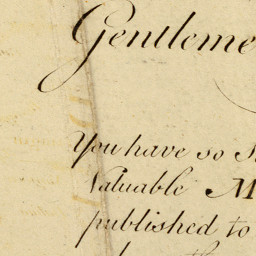 Gentleme
You have so
Valuable M
published to